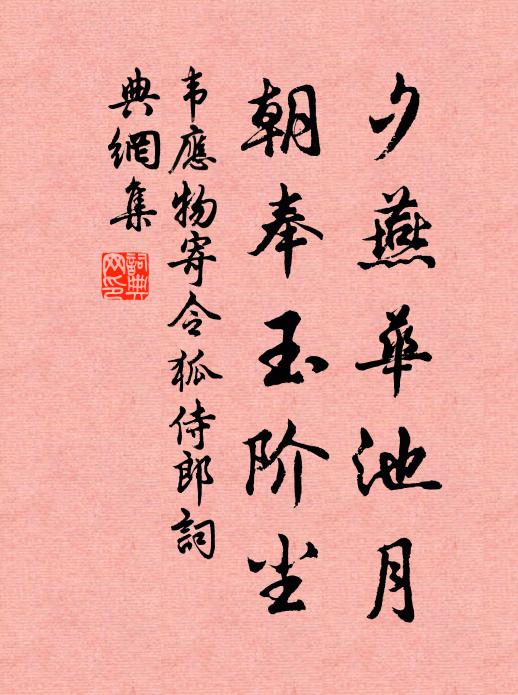 夕燕华池月
朝奉玉阶尘
韦應物寄令狐侍郎詞
典網集
詞典網印